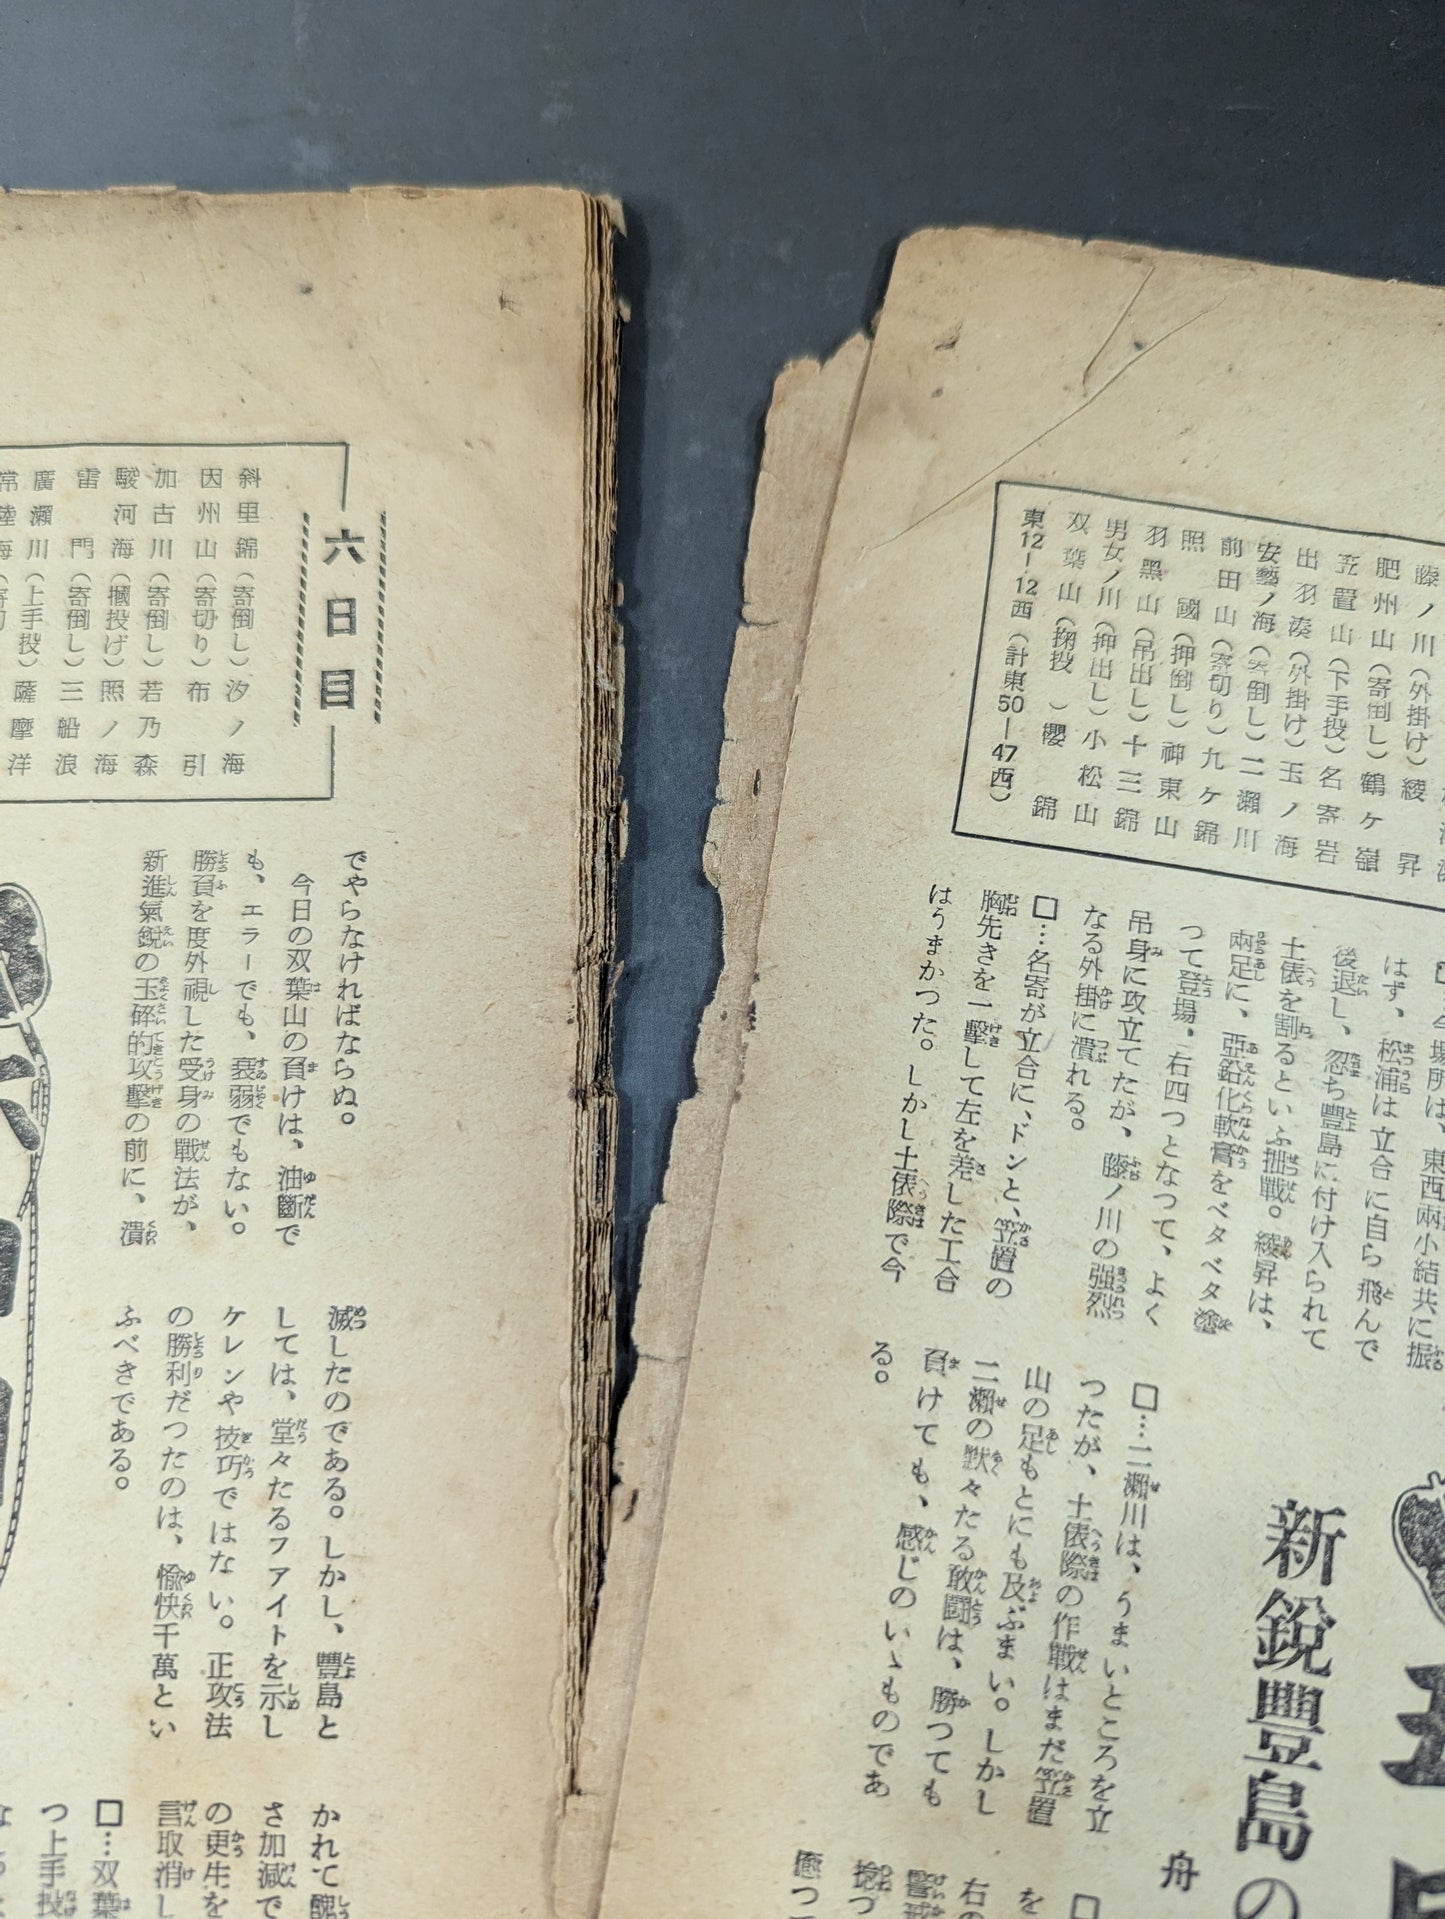 藤ノ川（外掛け）綾　昇
肥州山（寄倒し）鶴ケ嶺
笠置山（下手投）名寄岩
出羽湊（外掛け）玉ノ海
安藝ノ海（寄倒し）二瀬川
前田山（寄切り）九ケ錦
照　國（押倒し）神東山
羽黑山（吊出し）十三錦
男女ノ川（押出し）小松山
双葉山（掬投　）櫻　錦
東12―12西（計東50―47西）
はず、松浦は立合に自ら飛んで
後退し、忽ち豐島に付け入られて
土俵を割るといふ拙戰。綾昇は、
兩足に、亞鉛化軟膏をベタベタ塗
つて登場、右四つとなつて、よく
吊身に攻立てたが、藤ノ川の强烈
なる外掛に潰れる。
□…名寄が立合に、ドンと、笠置の
胸先きを一擊して左を差した工合
はうまかつた。しかし土俵際で今
□…二瀬川は、うまいところを立
つたが、土俵際の作戰はまだ笠置
山の足もとにも及ぶまい。しかし
二瀬の默々たる敢鬪は、勝つても
負けても、感じのいゝものであ
る。
新鋭豐島の
舟
六日目
斜里錦（寄倒し）汐ノ海
因州山（寄切り）布　引
加古川（寄倒し）若乃森
駿河海（摑投げ）照ノ海
雷　門（寄倒し）三船浪
廣瀬川（上手投）薩摩洋
でやらなければならぬ。
今日の双葉山の負けは、油斷で
も、エラーでも、衰弱でもない。
勝負を度外視した受身の戰法が、
新進氣鋭の玉碎的攻擊の前に、潰
滅したのである。しかし、豐島と
しては、堂々たるファイトを示し
ケレンや技巧ではない。正攻法
の勝利だつたのは、愉快千萬とい
ふべきである。
かれて醜
さ加減で
の更生を
言取消し
□…双葉
つ上手投